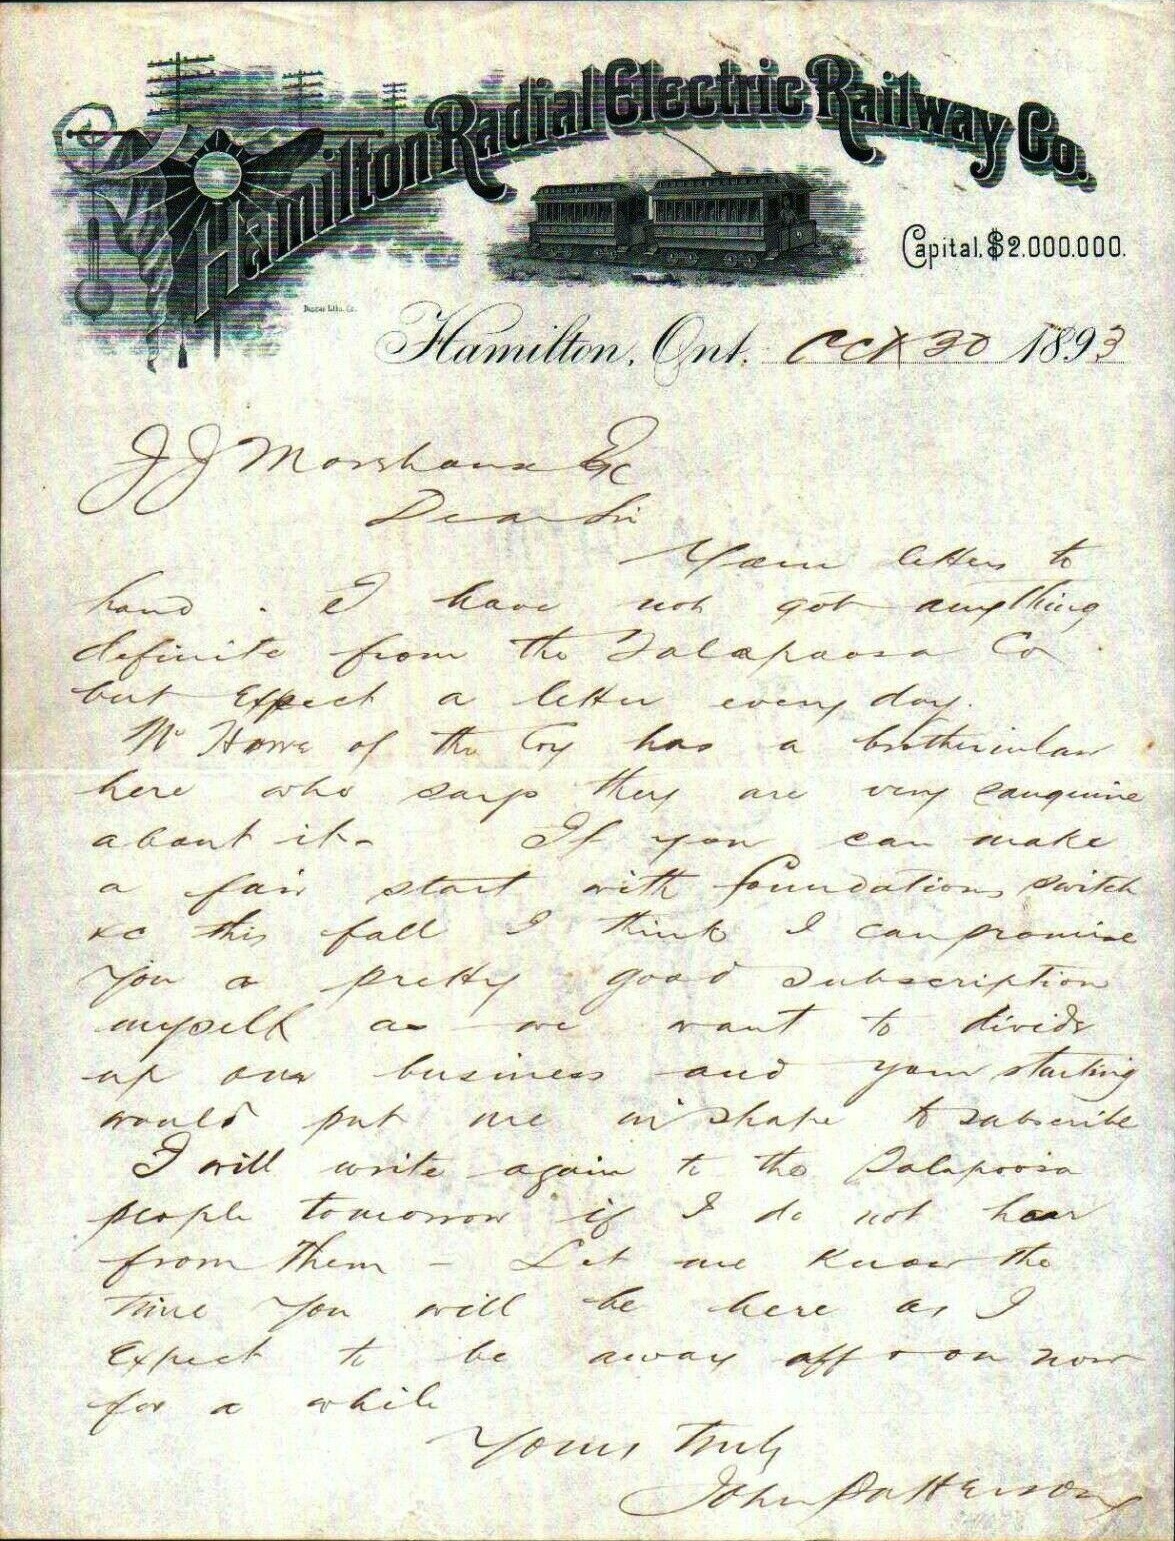 Hamilton Radial Electric Railway Co.
Capital. $2.000.000.
Hamilton, Ont. Oct 30 1893
J J Morehouse Esq
Dear Sir
Your letters to
hand. I have not got anything
definite from the Talapoosa Co
but Expect a letter every day.
Mr Howe of the Coy has a brotherinlaw
here who says they are very sanguine
about it - If you can make
a fair start with foundations switch
&c this fall I think I can promise
You a pretty good subscription
myself as we want to divide
up our business and your starting
would put me in shape to subscribe
I will write again to the Talapoosa
people tomorrow if I do not hear
from them - Let me Know the
time You will be here as I
Expect to be away off & on now
for a while
Yours Truly
John Patterson